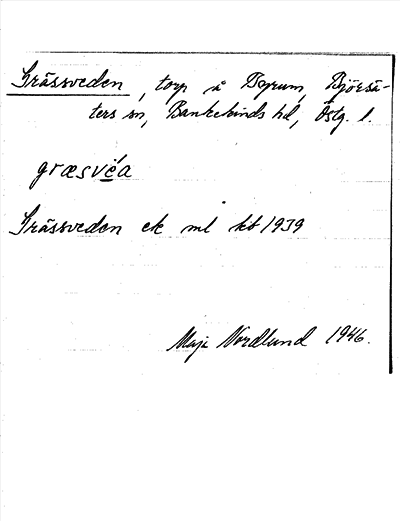 Grässveden, torp å Torum, Björsä-
ters sn, Bankekinds hd, Östg. l.
græsvéa
Grässveden ek ml kb 1939
Maja Nordlund 1946.